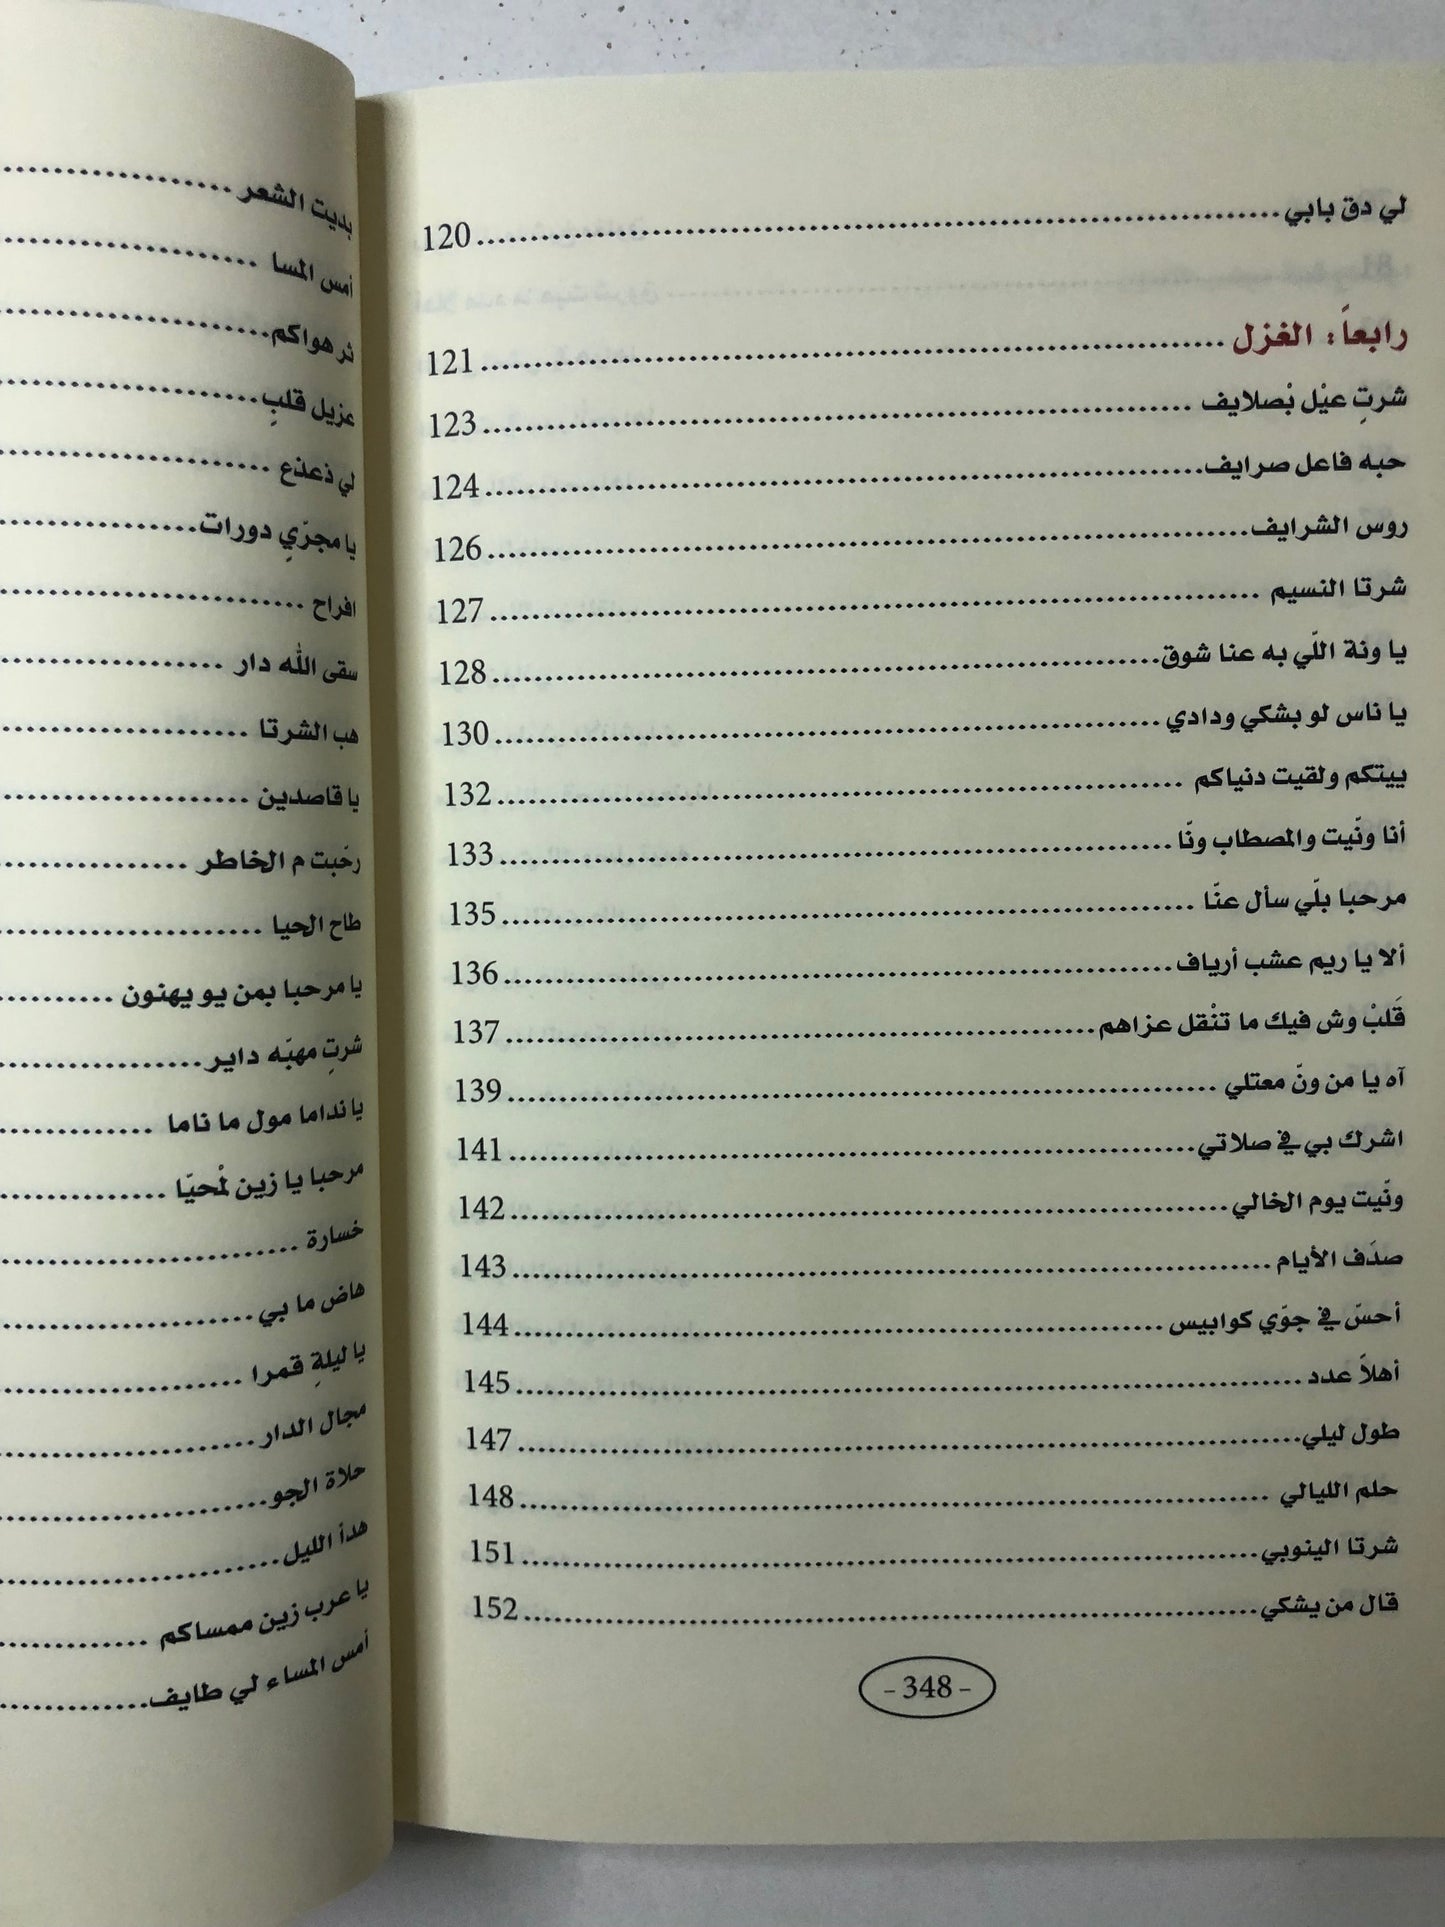 لي دق بابي ........ 120
رابعاً: الغزل ........ 121
شرتِ عيْل بْصلايف ........ 123
حبه فاعل صرايف ........ 124
روس الشرايف ........ 126
شرتا النسيم ........ 127
يا ونة اللّي به عنا شوق ........ 128
يا ناس لو بشكي ودادي ........ 130
ييتكم ولقيت دنياكم ........ 132
أنا ونّيت والمصطاب ونّا ........ 133
مرحبا بلّي سأل عنّا ........ 135
ألا يا ريم عشب أرياف ........ 136
قَلبْ وش فيك ما تنْقل عزاهم ........ 137
آه يا من ونّ معتلي ........ 139
اشرك بي في صلاتي ........ 141
ونّيت يوم الخالي ........ 142
صدَف الأيام ........ 143
أحسّ في جوّي كوابيس ........ 144
أهلاً عدد ........ 145
طول ليلي ........ 147
حلم الليالي ........ 148
شرتا الينوبي ........ 151
قال من يشكي ........ 152
- 348 -
بديت الشعر ........
أمس المسا ........
ثر هواكم ........
عزيل قلبٍ ........
لي ذعذع ........
يا مجرّي دورات ........
افراح ........
سقى الله دار ........
هب الشرتا ........
يا قاصدين ........
رحّبت م الخاطر ........
طاح الحيا ........
يا مرحبا بمن يو يهنون ........
شرتِ مهبّه داير ........
يا نداما مول ما ناما ........
مرحبا يا زين لْمحيّا ........
خسارة ........
هاض ما بي ........
يا ليلةِ قمرا ........
مجال الدار ........
حلاة الجو ........
هدأ الليل ........
يا عرب زين ممساكم ........
أمس المساء لي طايف ........